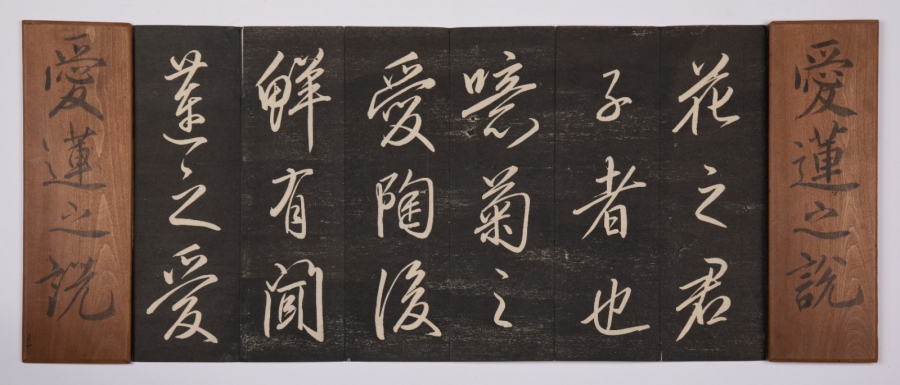 愛蓮之說
花之君
子者也
噫菊之
愛陶後
鮮有聞
蓮之愛
愛蓮之説